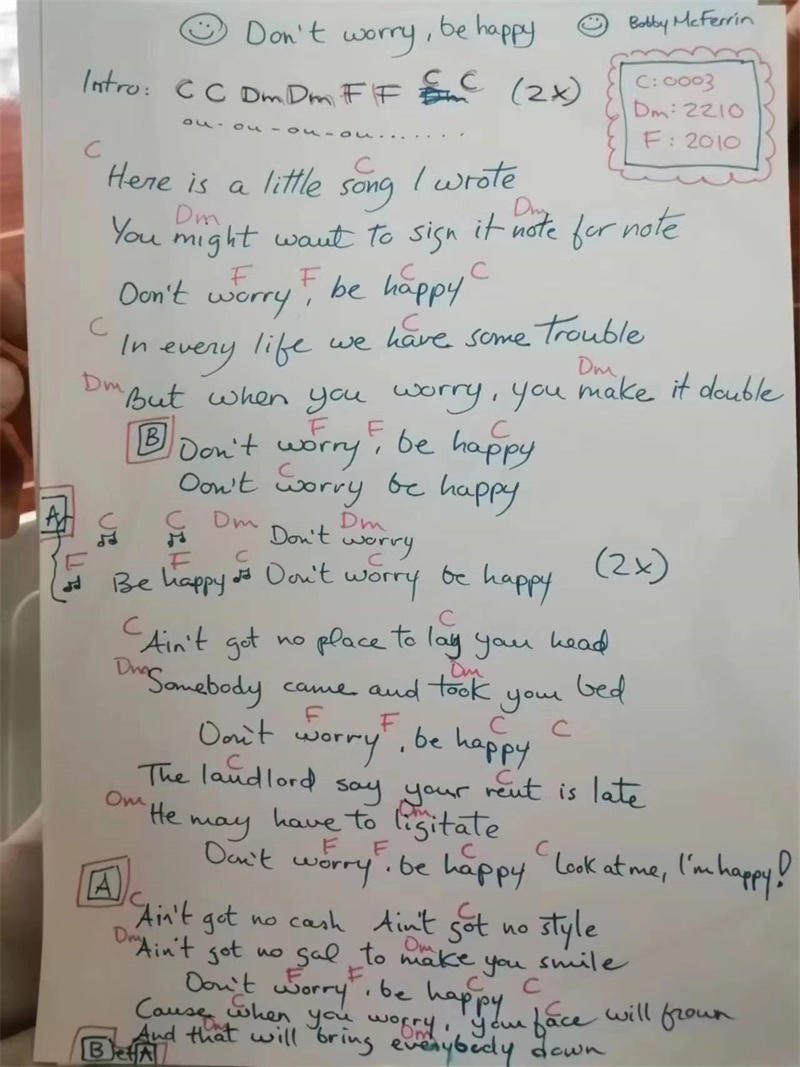 Don't worry, be happy Bobby McFerrin
Intro: C C Dm Dm F F C C (2x)
ou-ou-ou-ou.......
C:0003
Dm:2210
F:2010
C C
Here is a little song I wrote
Dm Dm
You might want to sign it note for note
F F C C
Don't worry, be happy
C C
In every life we have some trouble
Dm Dm
But when you worry, you make it double
F F C
B Don't worry, be happy
C
Don't worry be happy
A C C Dm Dm
Don't worry
F F C C
Be happy Don't worry be happy (2x)
C C
Ain't got no place to lay your head
Dm Dm
Somebody came and took your bed
F F C C
Don't worry, be happy
C C
The landlord say your rent is late
Dm Dm
He may have to ligitate
F F C C
Don't worry. be happy Look at me, I'm happy!
A
C C
Ain't got no cash Ain't got no style
Dm Dm
Ain't got no gal to make you smile
F F C C
Don't worry. be happy
C C
Cause when you worry, your face will frown
Dm Dm
And that will bring everybody down
B et A